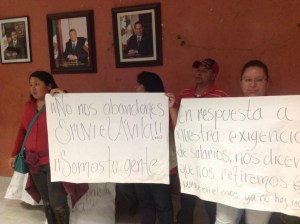 ¡¡No nos abandones
Eruviel Avila!!
¡¡Somos tu gente
En respuesta a
nuestra exigencia
de salarios, nos dicen
que nos retiremos